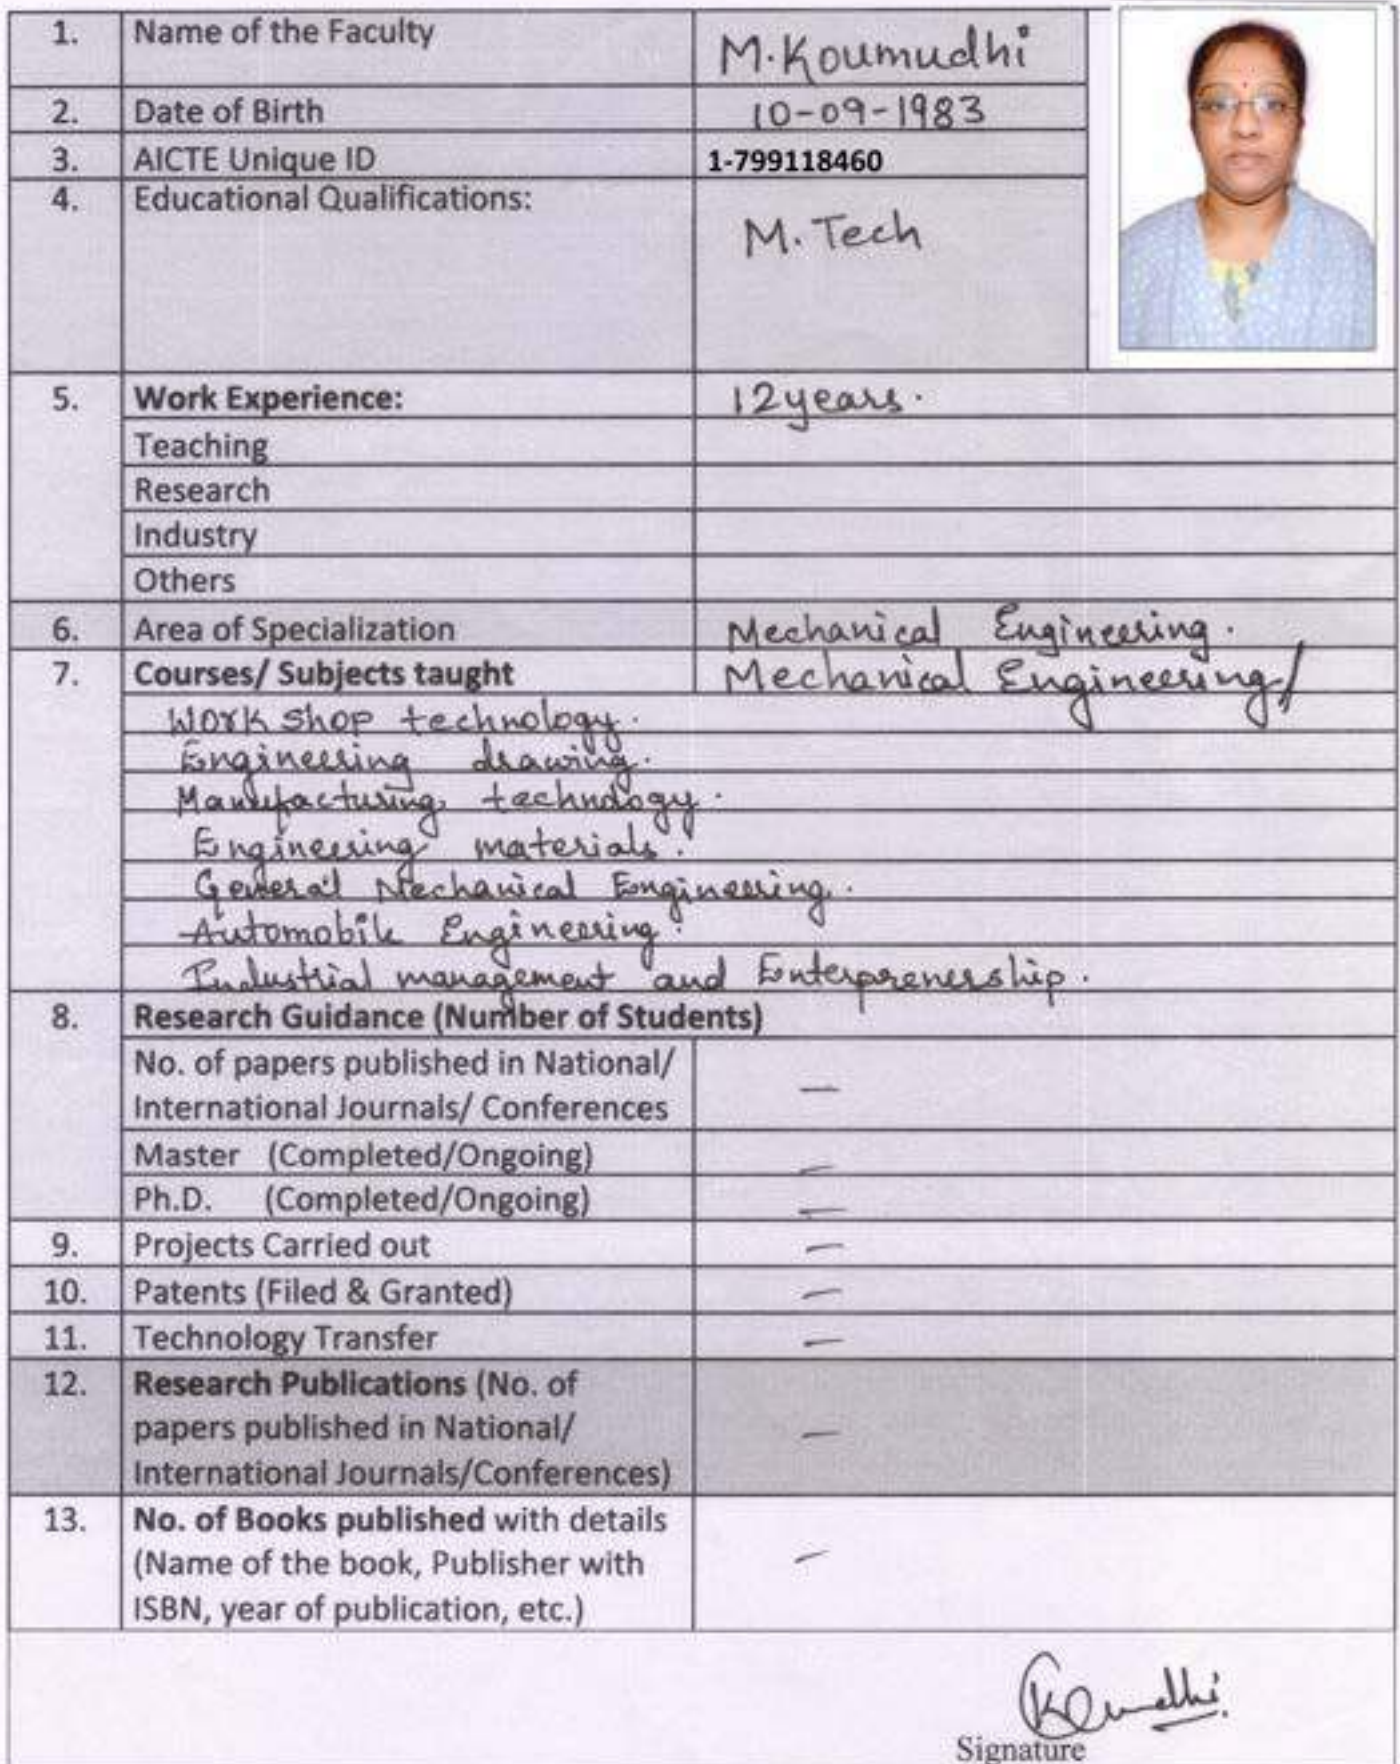 1. Name of the Faculty M.Koumudhi
2. Date of Birth 10-09-1983
3. AICTE Unique ID 1-799118460
4. Educational Qualifications: M.Tech
5. Work Experience: 12years.
Teaching
Research
Industry
Others
6. Area of Specialization Mechanical Engineering.
7. Courses/ Subjects taught Mechanical Engineering/
Work shop technology.
Engineering drawing.
Manufacturing technology.
Engineering materials.
General Mechanical Engineering.
Automobile Engineering.
Industrial management and Enterprenership.
8. Research Guidance (Number of Students)
No. of papers published in National/
International Journals/ Conferences —
Master (Completed/Ongoing) —
Ph.D. (Completed/Ongoing) —
9. Projects Carried out —
10. Patents (Filed & Granted) —
11. Technology Transfer —
12. Research Publications (No. of
papers published in National/ —
International Journals/Conferences)
13. No. of Books published with details
(Name of the book, Publisher with —
ISBN, year of publication, etc.)
Signature